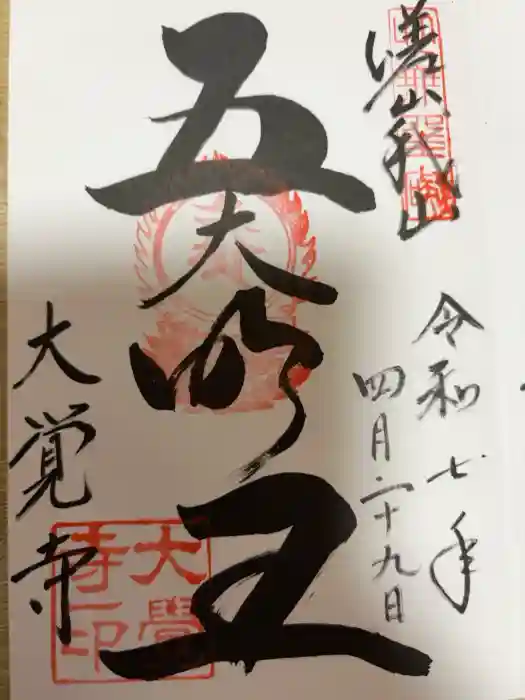 嵯峨山
令和七年
四月二十九日
五大明王
大覚寺
大覺
寺印